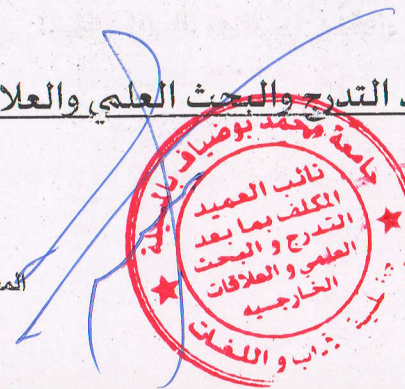 التدرج والبحث العلمي والعلا
جامعة محمد بوضياف بالمسيلة
نائب العميد
المكلف بما بعد
التدرج و البحث
العلمي و العلاقات
الخارجيه
و اللغات